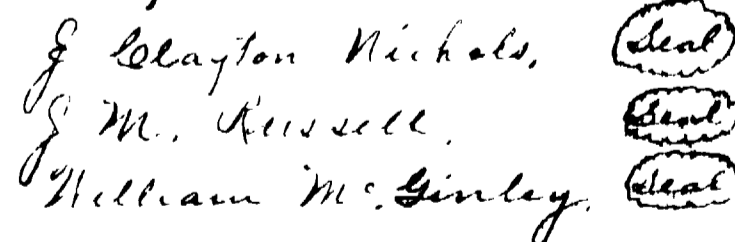 J Clayton Nichols. Seal
J M. Russell. Seal
William McGinley. Seal